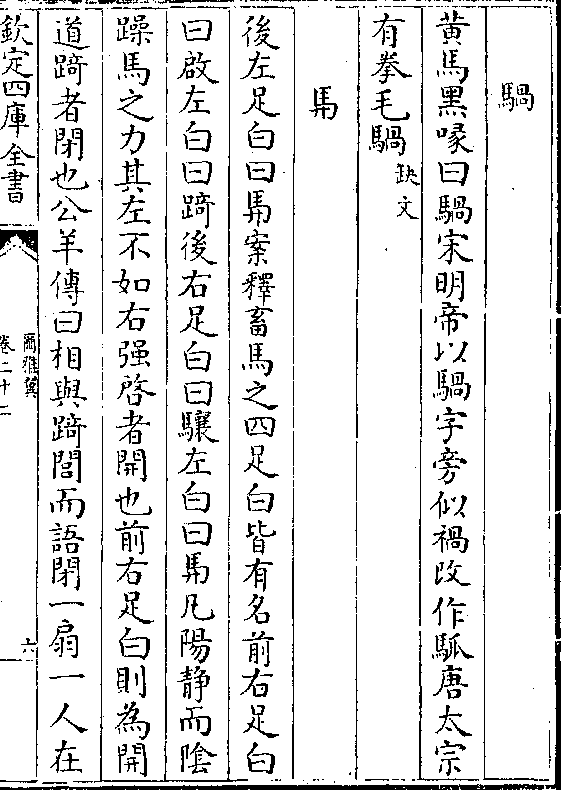 騧
黄馬黒喙曰騧宋明帝以騧字旁似禍改作䯄唐太宗
有拳毛騧缺文
馵
後左足白曰馵案釋畜馬之四足白皆有名前右足白
曰啟左白曰踦後右足白曰驤左白曰馵凡陽静而隂
躁馬之力其左不如右强啓者開也前右足白則為開
道踦者閉也公羊傳曰相與踦閭而語閉一扇一人在
欽定四庫全書
爾雅翼
卷二十二
六